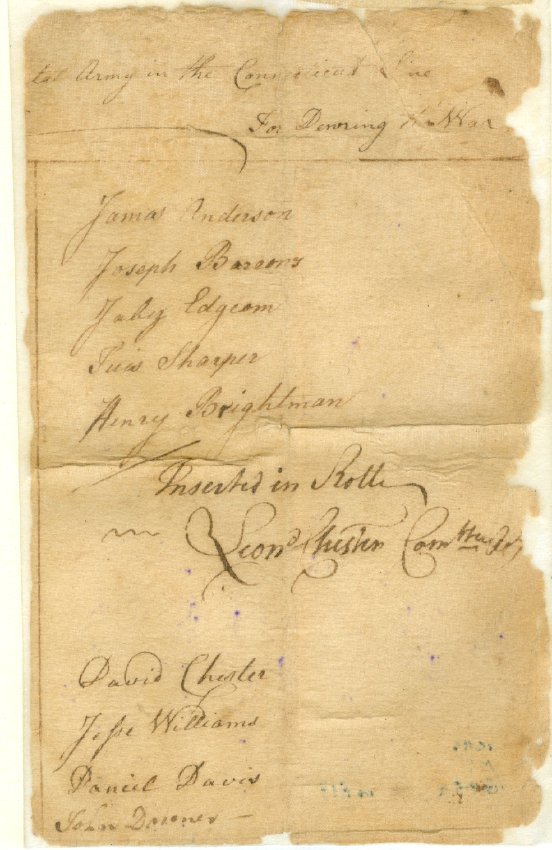 tal Army in the Connecticut Line
For Dewring the War
James Anderson
Joseph Barrons
Jaby Edgcom
Sharper
Henry Brightman
Inserted in Rolls
Leond Chester Com
David Chester
Jesse Williams
Daniel Davis
John Downer